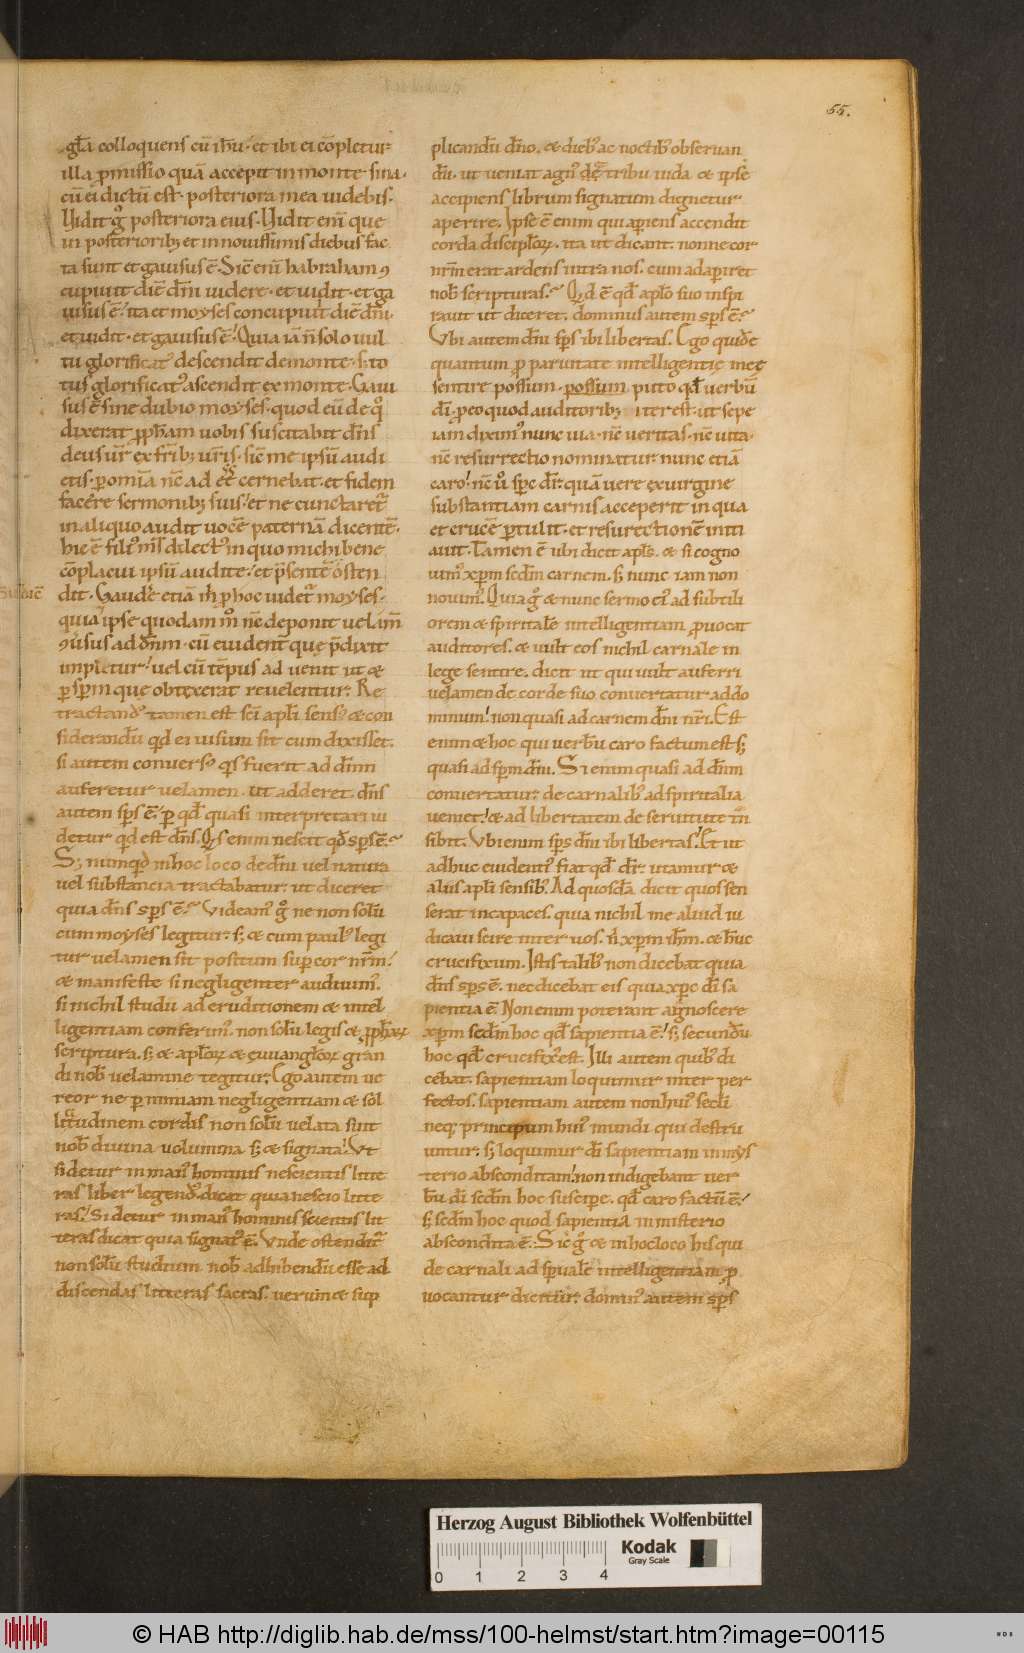 55.
gl̄a colloquens cū ih̄u· et ibi ei cōpletur
illa ꝓmissio quā accepit in monte sina·
cū ei dictū est· posteriora mea uidebis·
Uidit g̊ posteriora eius· Uidit eni᷒ que
in posteriorib; et in nouissimis dieb; fac
ta sunt et gauisus ē· Sic̄ eni᷒ habraham
cupiuit diē dn̄i uidere· et uidit· et ga
uisus ē· ita et moyses concupiuit diē dn̄i·
et uidit· et gauisus ē· Quia iā n̄ solo uul
tu glorificat᷒ descendit de monte· s; to
tus glorificat᷒ ascendit ex monte· Gaui
sus ē sine dubio moyses· quod eū de q̊
dixerat ꝓph̄am uobis suscitabit dn̄s
deus ur̄ ex fr̄ib; ur̄is· sic̄ me ipsū audi
etis· ꝑ omīa n̄c adeē cernebat· et fidem
facere sermonib; suis· et ne cunctaret᷒
in aliquo audit uocē paternā dicentē·
hic ē fili᷒ m̄s dilect᷒ in quo michi bene
cōplacui ipsū audite· et p̄sentē osten
dit· Gaudere etiā ih̄ ꝓ hoc uidet᷒ moyses·
quia ipse quodam m̊ n̄c deponit uelam̄
uersus ad dn̄m· cū euident᷒ que p̄dixit
implētur· uel cū tēpus aduenit ut &
ꝑ sp̄m que obtexerat reuelentur· Re
tractand᷒ tamen est sc̄i apl̄i sens᷒ & con
siderandū qd̄ ei uisum sit cum dixisset·
si autem conuers᷒ q̄s fuerit ad dn̄m
auferetur uelamen· ut adderet· dn̄s
autem sp̄s ē· ꝑ qd̄ quasi interpretari ui
detur qd̄ est dn̄s· Q̄s enim nescit qd̄ sp̄s ē·
S; numqd̄ in hoc loco de dn̄i uel natura
uel substantia tractabatur· ut diceret
quia dn̄s sp̄s ē· Videam᷒ g̊ ne non solū
cum moyses legitur· s; & cum paul᷒ legi
tur uelamen sit positum sup̄ cor nr̄m·
& manifeste si negligenter audiuim᷒
si nichil studii ad eruditionem & intel
ligentiam conferim᷒ non solū legis & ꝓph̄aꝝ
scriptura· s; & apl̄oꝝ & euuangl̄oꝝ gran
di nob᷒ uelamine tegitur· Ego autem ue
reor ne ꝑ nimiam negligentiam & sol
litudinem cordis non solū uelata sint
nob᷒ diuina uolumina s; & signata· Vt
si detur in man᷒ hominis nescientis litte
ras liber legend᷒· dicat quia nescio litte
ras· Si detur in man᷒ hominis scientis lit
teras dicat quia signat᷒ ē· Vnde ostendit᷒
non solū studium nob᷒ adhibendū esse ad
discendas litteras sacras· uerum & sup
plicandū dn̄o· & dieb᷒ ac noctib᷒ obseruan
dū· ut ueniat agn᷒ de tribu iuda & ipse
accipiens librum signatum dignetur
aperire· Ipse ē enim qui aꝑiens accendit
corda discipl̄oꝝ· ita ut dicant· nonne cor
nr̄m erat ardens intra nos· cum adaꝑiret
nob᷒ scripturas· Qd̄ ē qd̄ apl̄o suo inspi
rauit ut diceret· dominus autem sp̄s ē·
Vbi autem dn̄i sp̄s ibi libertas· Ego quidē
quantum ꝓ paruitate intelligentie meę
sentire possum· possum puto qd̄ uerbū
dī ꝓ eo quod auditorib; iter est· ut sepe
iam dixim᷒ nunc uia· n̄c ueritas· n̄c uita·
n̄c resurrectio nominatur· nunc etiā
caro· n̄c ů sp̄c dr̄· quā uere ex uirgine
substantiam carnis acceperit in qua
et crucē ꝑtulit· et resurectionē initi
auit· Tamen ē ubi dicit apl̄s· & si cogno
uim᷒ xp̄m scdm̄ carnem· s; nunc iam non
nouim᷒· Quia g̊ & nunc sermo ei᷒ ad subtili
orem & spiritalē intelligentiam ꝓuocat
auditores· & uult eos nichil carnale in
lege sentire· dicit ut qui uult auferri
uelamen de corde suo conuertatur ad do
minum· non quasi ad carnem dn̄i nr̄i· Est
enim & hoc qui uerbū caro factum est s;
quasi ad sp̄m dn̄m· Si enim quasi ad dn̄m
conuertatur· de carnalib᷒ ad spiritalia
ueniet· & ad libertatem de seruitute t᷒n
sibit· Vbi enim sp̄s dn̄i ibi libertas· Et ut
adhuc euident᷒ fiat qd̄ dr̄· utamur &
aliis apl̄i sensib᷒· Ad quosdā dicit quos sen
serat incapaces· quia nichil me aliud iu
dicaui scire inter uos· n̄ xp̄m ih̄m· & hūc
crucifixum· Istis talib᷒ non dicebat quia
dn̄s sp̄s ē· nec dicebat eis quia xp̄c dī sa
pientia ē· Non enim poterant agnoscere
xp̄m scdm̄ hoc qd̄ sapientia ē· s; secundū
hoc qd̄ crucifix᷒ est· Illi autem quib᷒ di
cebat· sapientiam loquimur inter per
fectos· sapientiam autem non hui᷒ secl̄i
neq; principum hui᷒ mundi qui destru
untur· s; loquimur dī sapientiam in mys
terio absconditam· non indigebant uer
bū dī scdm̄ hoc suscipe· qd̄ caro factū ē·
s; scdm̄ hoc quod sapientia in misterio
abscondita ē· Sic g̊ & in hoc loco his qui
de carnali ad sp̄ualē intelligentiam ꝓ
uocantur dicitur· domin᷒ autem sp̄s
Herzog August Bibliothek Wolfenbüttel
Kodak
Gray Scale
0 1 2 3 4
© HAB http://diglib.hab.de/mss/100-helmst/start.htm?image=00115
HAB